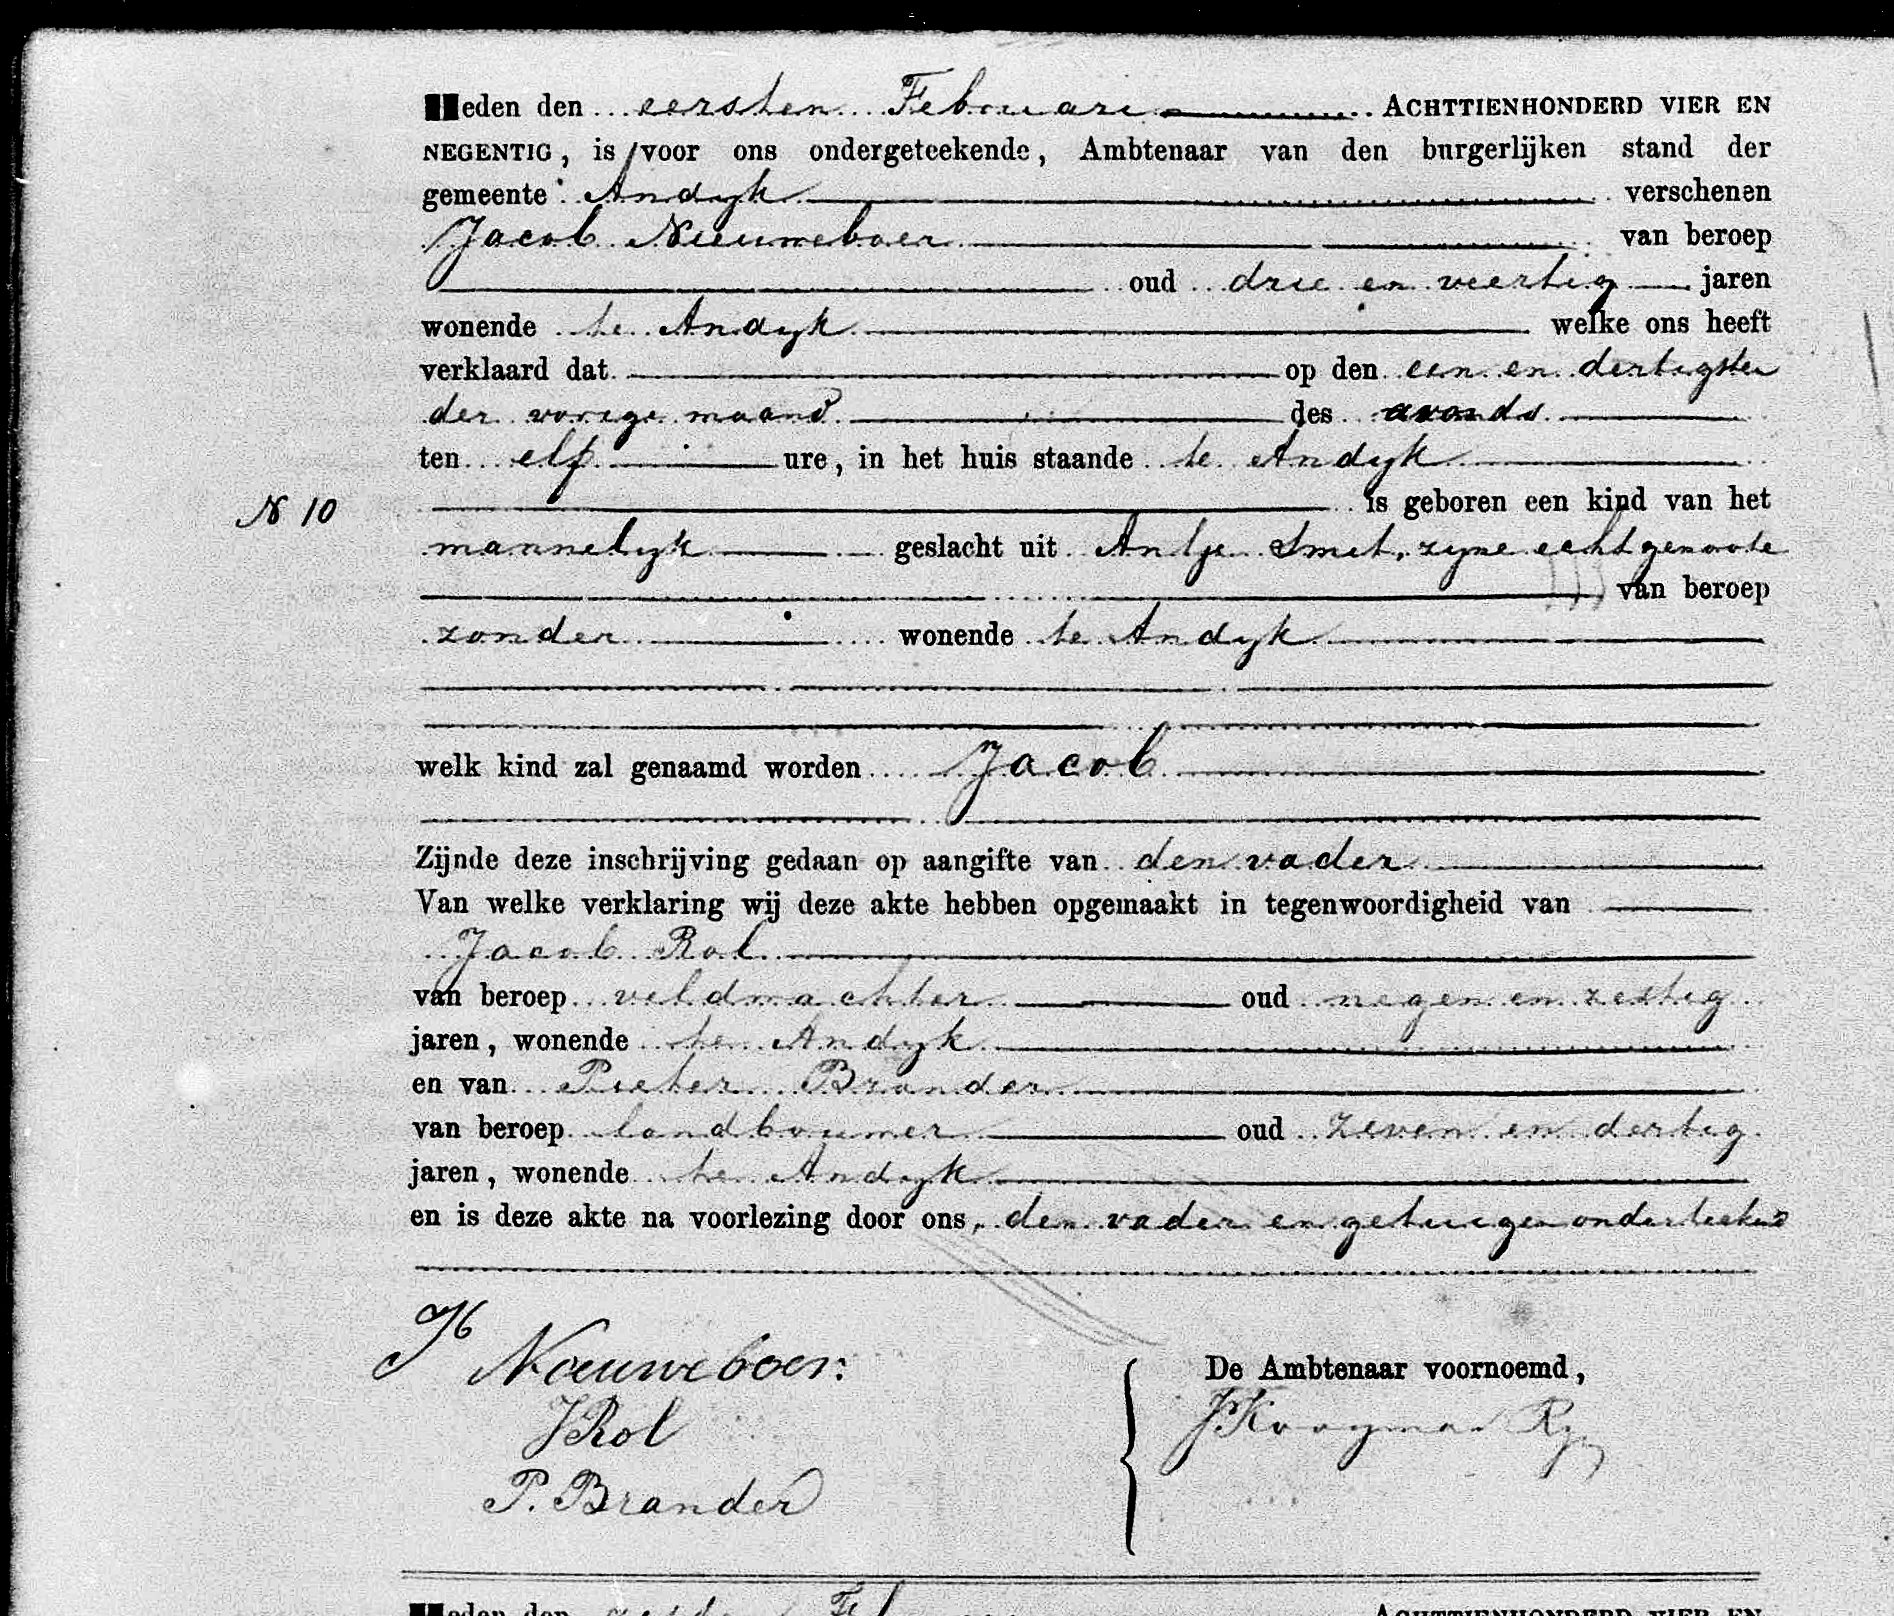 Heden den eersten Februari ACHTTIENHONDERD VIER EN
NEGENTIG, is voor ons ondergeteekende, Ambtenaar van den burgerlijken stand der
gemeente Andyk verschenen
Jacob Nieuweboer van beroep
oud drie en veertig jaren
wonende te Andyk welke ons heeft
verklaard dat op den een en dertigsten
der vorige maand des avonds
ten elf ure, in het huis staande te Andyk
N 10 is geboren een kind van het
mannelyk geslacht uit Antje Smet, zyne echtgenoote
van beroep
zonder wonende te Andyk
welk kind zal genaamd worden Jacob
Zijnde deze inschrijving gedaan op aangifte van den vader
Van welke verklaring wij deze akte hebben opgemaakt in tegenwoordigheid van
Jacob Rol
van beroep veldwachter oud negen en zestig
jaren, wonende te Andyk
en van Pieter Brander
van beroep landbouwer oud zeven en dertig
jaren, wonende te Andyk
en is deze akte na voorlezing door ons, den vader en getuigen onderteekend
Nieuweboer.
De Ambtenaar voornoemd,
JRol
JKooyman
P. Brander
Heden den Feb ACHTTIENHONDERD VIER EN